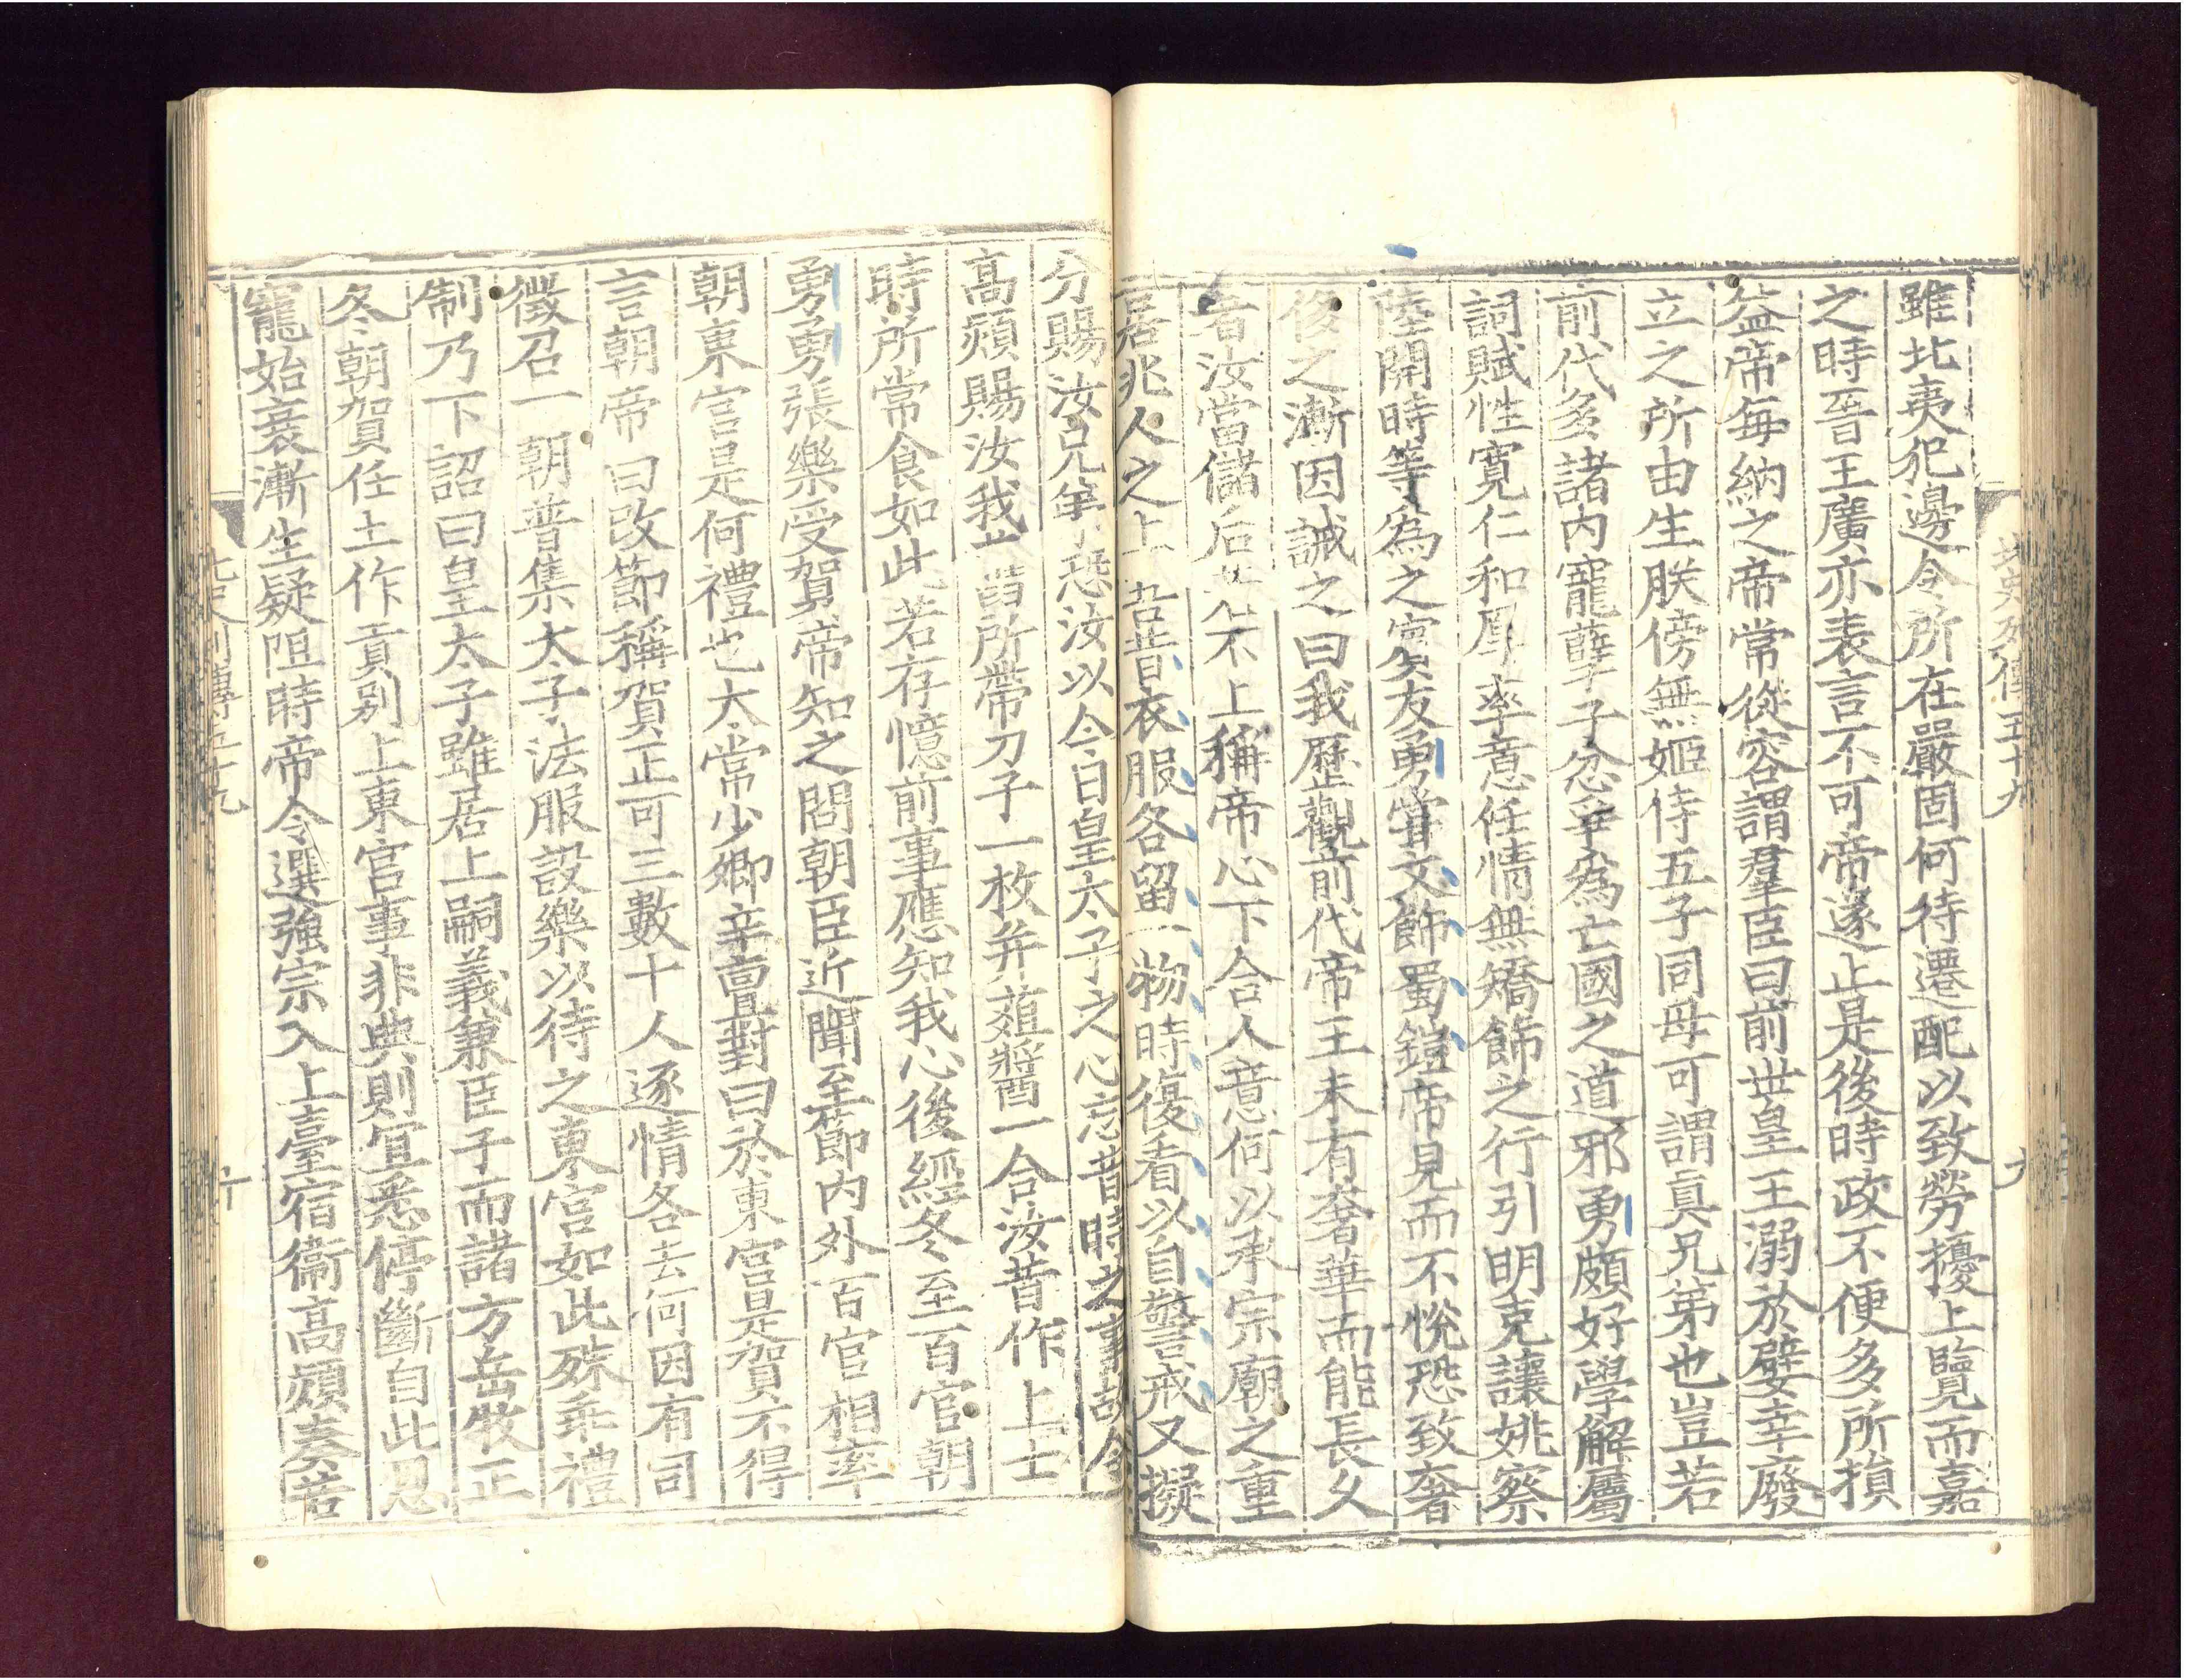 北史列傳五十九
九
雖北夷犯邊令所在嚴固何待遷配以致勞擾上覽而嘉
之時晉王廣亦表言不可帝遂止是後時政不便多所損
益帝每納之帝常從容謂羣臣曰前世皇王溺於嬖幸廢
立之所由生朕傍無姬侍五子同母可謂真兄弟也豈若
前代多諸內寵孽子忿爭為亡國之道邪勇頗好學解屬
詞賦性寬仁和厚率意任情無矯飾之行引明克讓姚察
陸開時等為之賓友勇嘗文飾蜀鎧帝見而不悅恐致奢
侈之漸因誡之曰我歷觀前代帝王未有奢華而能長久
者汝當儲后若不上稱帝心下合人意何以承宗廟之重
居兆人之上吾昔衣服各留一物時復看以自警戒又擬
分賜汝兄弟恐汝以今日皇太子之心忘昔時之事故令
高熲賜汝我舊所帶刀子一枚并葅醬一合汝昔作上士
時所常食如此若存憶前事應知我心後經冬至百官朝
勇勇張樂受賀帝知之問朝臣近聞至節內外百官相率
朝東宮是何禮也太常少卿辛亶對曰於東宮是賀不得
言朝帝曰改節稱賀正可三數十人逐情各去何因有司
徵召一朝普集太子法服設樂以待之東宮如此殊乖禮
制乃下詔曰皇太子雖居上嗣義兼臣子而諸方岳牧正
冬朝賀任土作貢別上東宮事非典則宜悉停斷自此恩
寵始衰漸生疑阻時帝令選強宗入上臺宿衞高熲奏若
北史列傳五十九
十